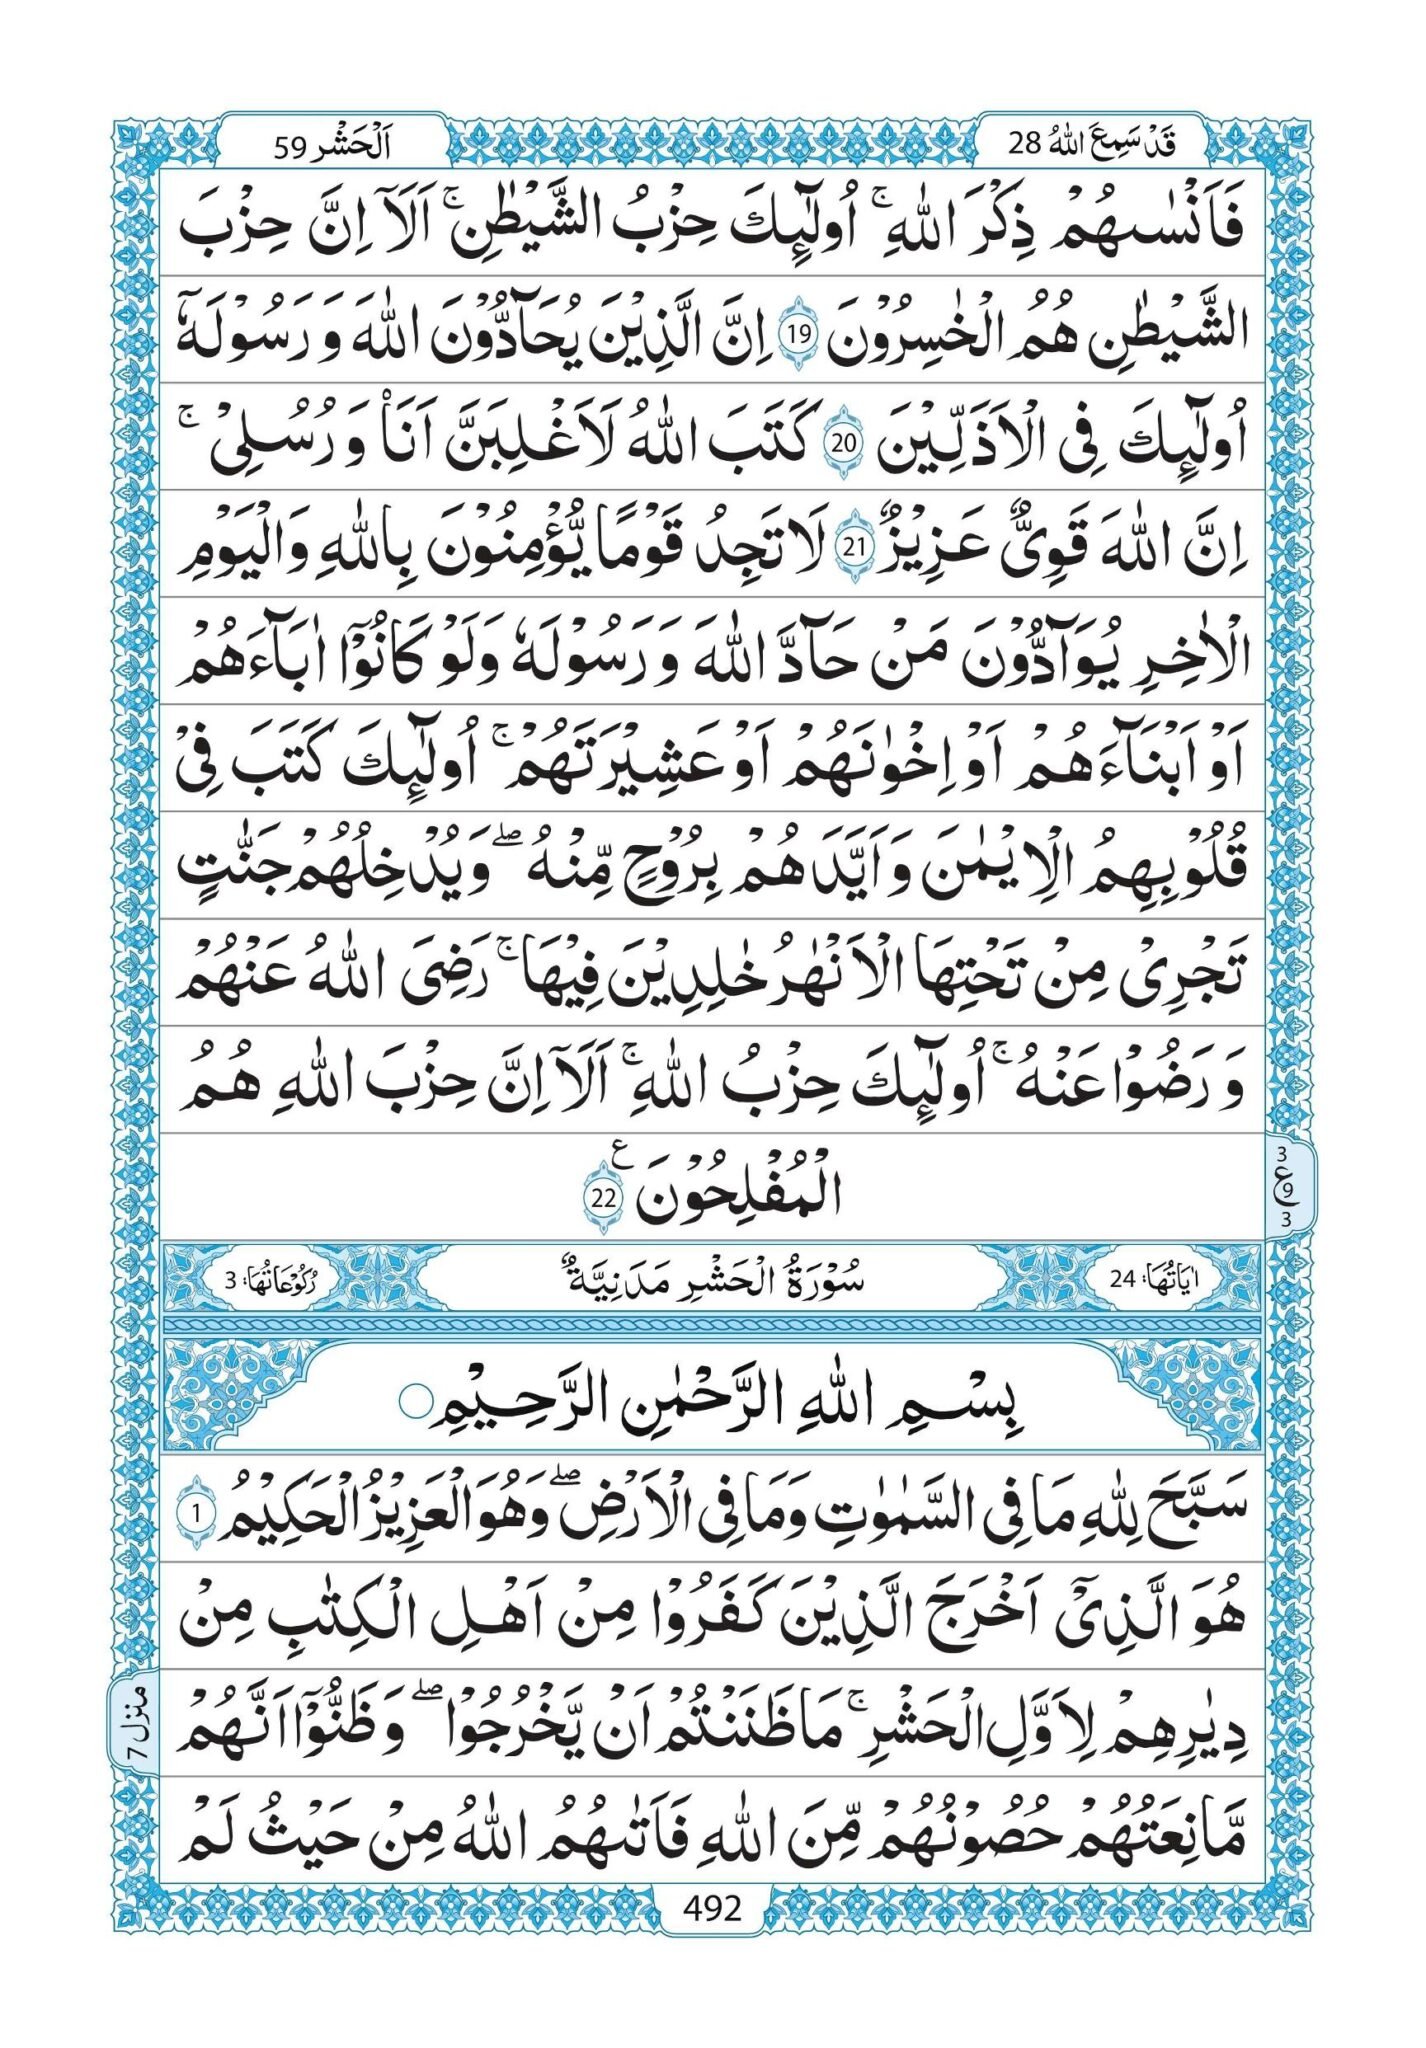 قَدْ سَمِعَ اللّٰهُ 28
اَلْحَشْر 59
فَاَنْسٰىهُمْ ذِكْرَ اللّٰهِ ۚ اُولٰٓئِكَ حِزْبُ الشَّيْطٰنِ ۚ اَلَاۤ اِنَّ حِزْبَ
الشَّيْطٰنِ هُمُ الْخٰسِرُوْنَ 19 اِنَّ الَّذِيْنَ يُحَآدُّوْنَ اللّٰهَ وَ رَسُوْلَهٗۤ
اُولٰٓئِكَ فِى الْاَذَلِّيْنَ 20 كَتَبَ اللّٰهُ لَاَغْلِبَنَّ اَنَا۠ وَ رُسُلِىْ ۚ
اِنَّ اللّٰهَ قَوِىٌّ عَزِيْزٌ 21 لَا تَجِدُ قَوْمًا يُّؤْمِنُوْنَ بِاللّٰهِ وَالْيَوْمِ
الْاٰخِرِ يُوَآدُّوْنَ مَنْ حَآدَّ اللّٰهَ وَ رَسُوْلَهٗ وَلَوْ كَانُوْۤا اٰبَآءَهُمْ
اَوْ اَبْنَآءَهُمْ اَوْ اِخْوٰنَهُمْ اَوْ عَشِيْرَتَهُمْ ۚ اُولٰٓئِكَ كَتَبَ فِىْ
قُلُوْبِهِمُ الْاِيْمٰنَ وَاَيَّدَهُمْ بِرُوْحٍ مِّنْهُ ۖ وَيُدْخِلُهُمْ جَنّٰتٍ
تَجْرِىْ مِنْ تَحْتِهَا الْاَنْهٰرُ خٰلِدِيْنَ فِيْهَا ۚ رَضِىَ اللّٰهُ عَنْهُمْ
وَ رَضُوْا عَنْهُ ۚ اُولٰٓئِكَ حِزْبُ اللّٰهِ ۚ اَلَاۤ اِنَّ حِزْبَ اللّٰهِ هُمُ
الْمُفْلِحُوْنَ ع 22
3
ع 9
3
اٰيَاتُهَا: 24
سُوْرَةُ الْحَشْرِ مَدَنِيَّةٌ
رُكُوْعَاتُهَا: 3
بِسْمِ اللّٰهِ الرَّحْمٰنِ الرَّحِيْمِ
سَبَّحَ لِلّٰهِ مَا فِى السَّمٰوٰتِ وَمَا فِى الْاَرْضِ ۖ وَهُوَ الْعَزِيْزُ الْحَكِيْمُ 1
هُوَ الَّذِىْۤ اَخْرَجَ الَّذِيْنَ كَفَرُوْا مِنْ اَهْلِ الْكِتٰبِ مِنْ
دِيٰرِهِمْ لِاَوَّلِ الْحَشْرِ ۚ مَا ظَنَنْتُمْ اَنْ يَّخْرُجُوْا ۖ وَظَنُّوْۤا اَنَّهُمْ
مَّانِعَتُهُمْ حُصُوْنُهُمْ مِّنَ اللّٰهِ فَاَتٰىهُمُ اللّٰهُ مِنْ حَيْثُ لَمْ
منزل 7
492